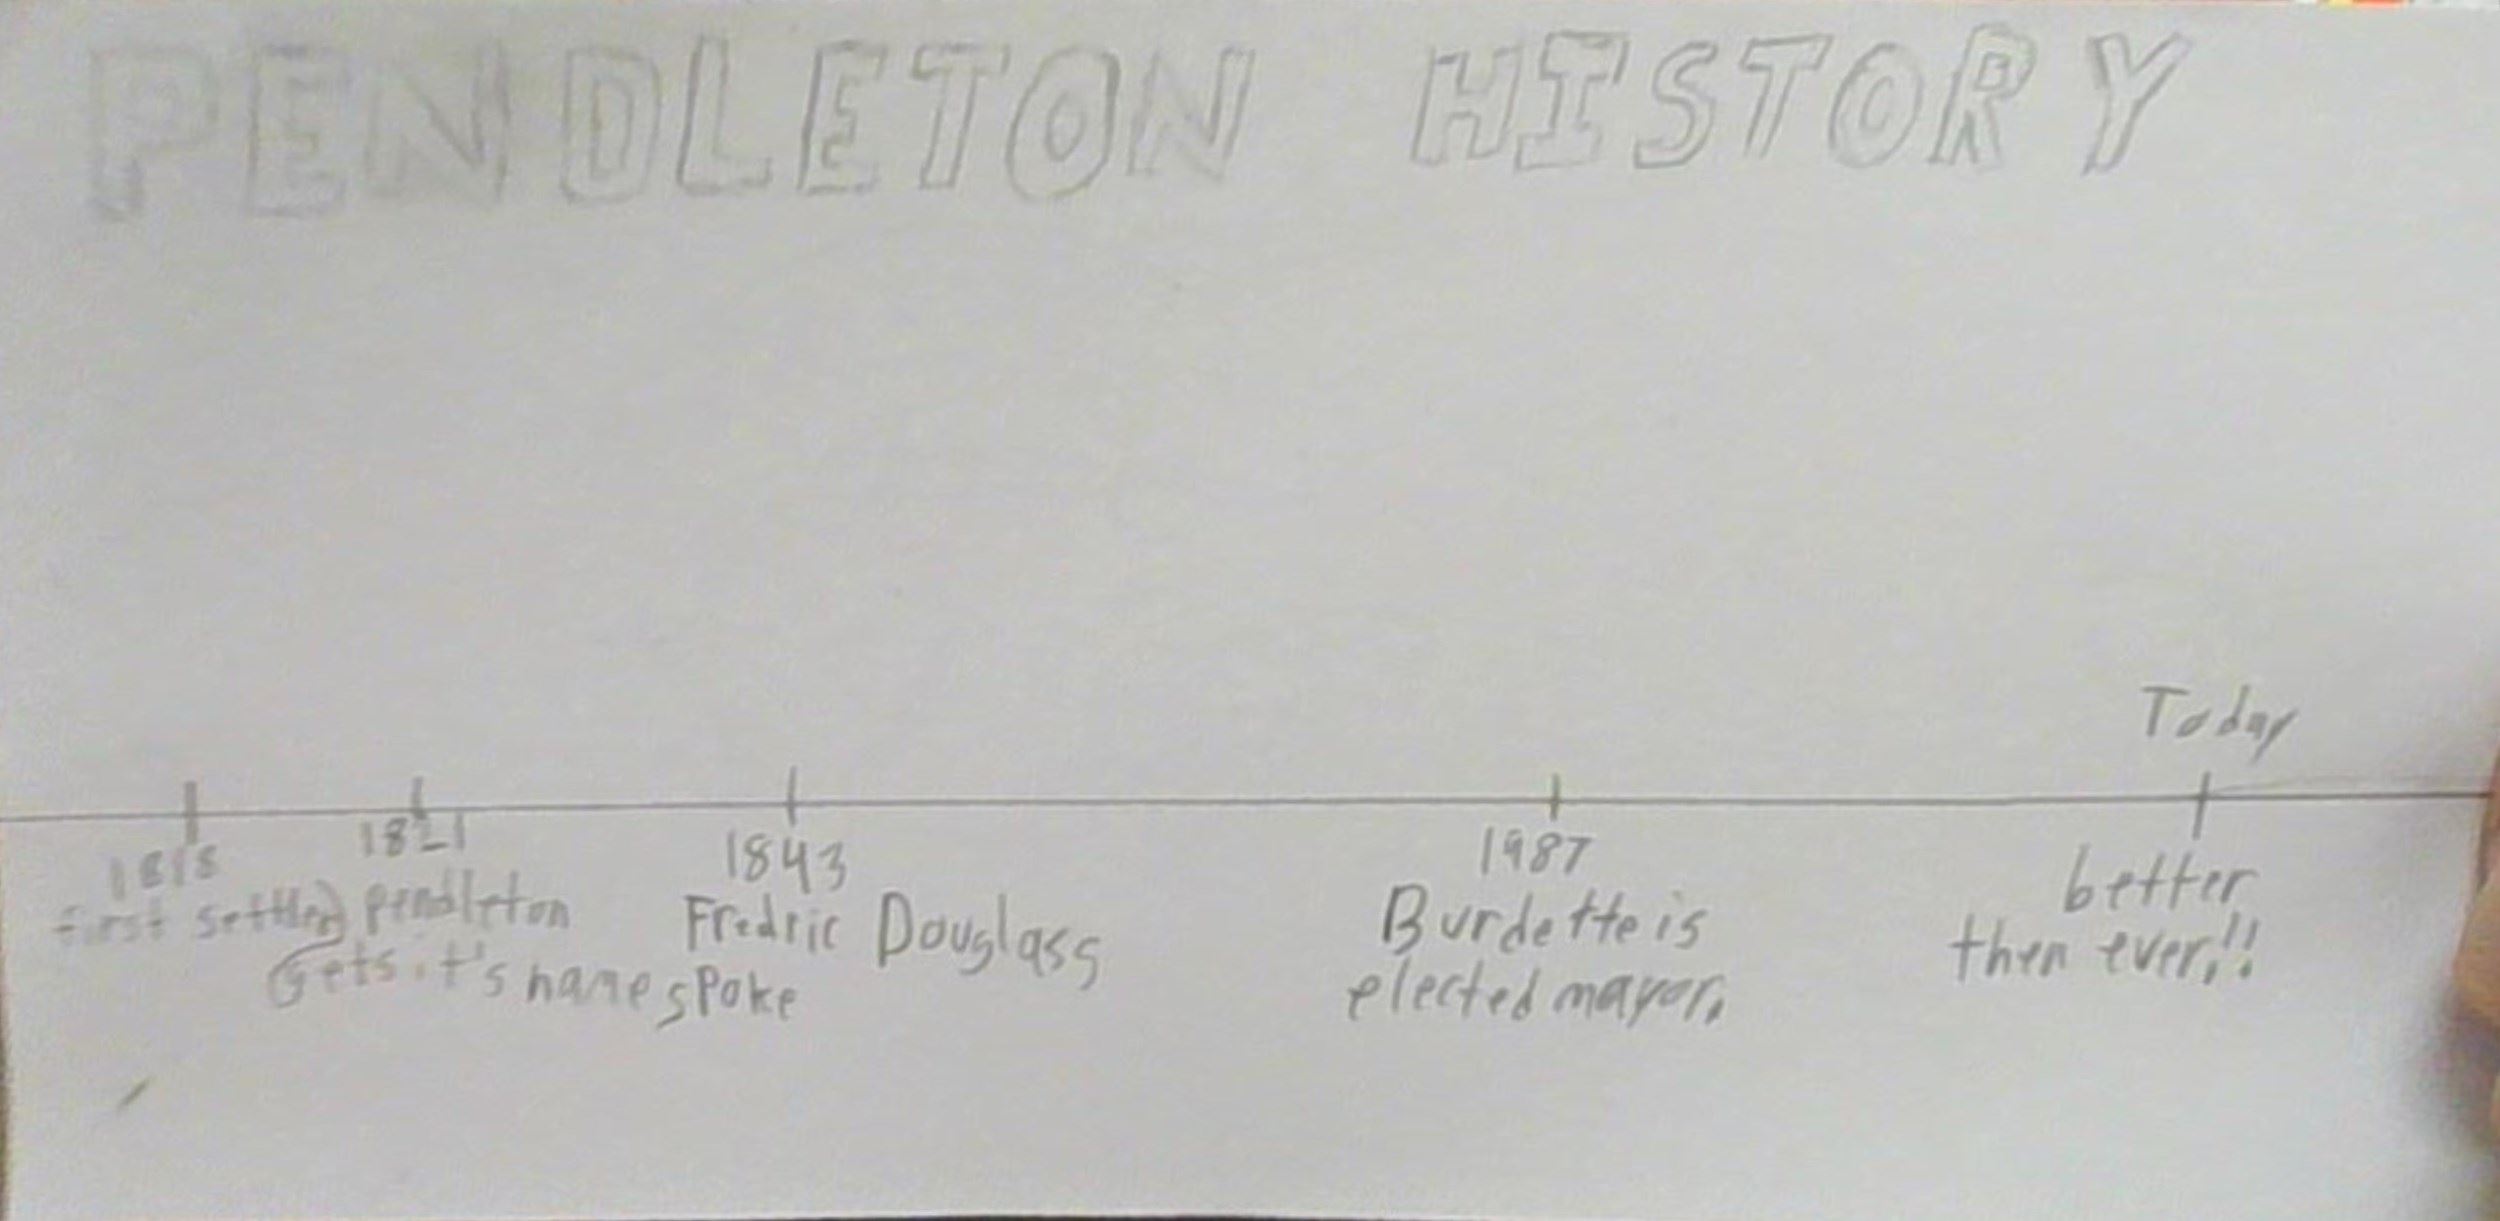 PENDLETON HISTORY
Today
1818
first settled
1821
pendleton
Gets it's name
1843
Fredric Douglass
spoke
1987
Burdette is
elected mayor.
better
then ever!!